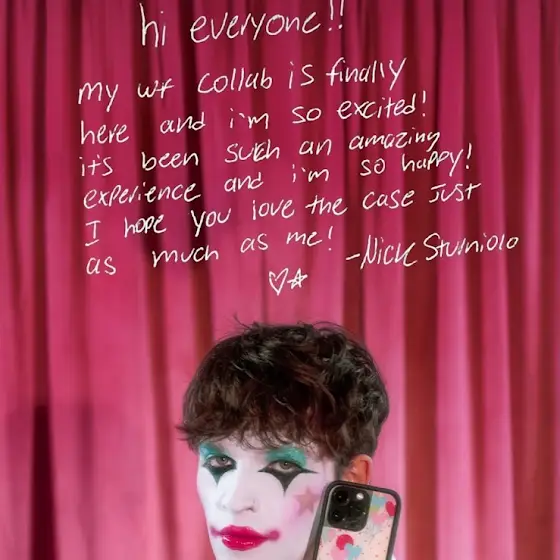 hi everyone!!
my wf collab is finally
here and i'm so excited!
it's been such an amazing
experience and i'm so happy!
I hope you love the case just
as much as me!
-Nick Sturniolo